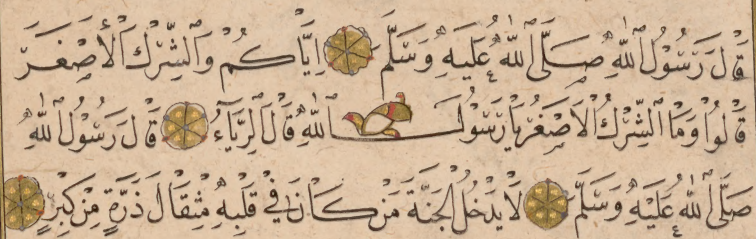 قَالَ رَسُوْلُ اللّٰهِ صَلَّى اللّٰهُ عَلَيْهِ وَسَلَّمَ اِيَّاكُمْ وَالشِّرْكَ الْأَصْغَرَ
قَالُوْا وَمَا الشِّرْكُ الْأَصْغَرُ يَا رَسُوْلَ اللّٰهِ قَالَ الرِّيَآءُ قَالَ رَسُوْلُ اللّٰهِ
صَلَّى اللّٰهُ عَلَيْهِ وَسَلَّمَ لَا يَدْخُلُ الْجَنَّةَ مَنْ كَانَ فِيْ قَلْبِهٖ مِثْقَالَ ذَرَّةٍ مِنْ كِبْرٍ